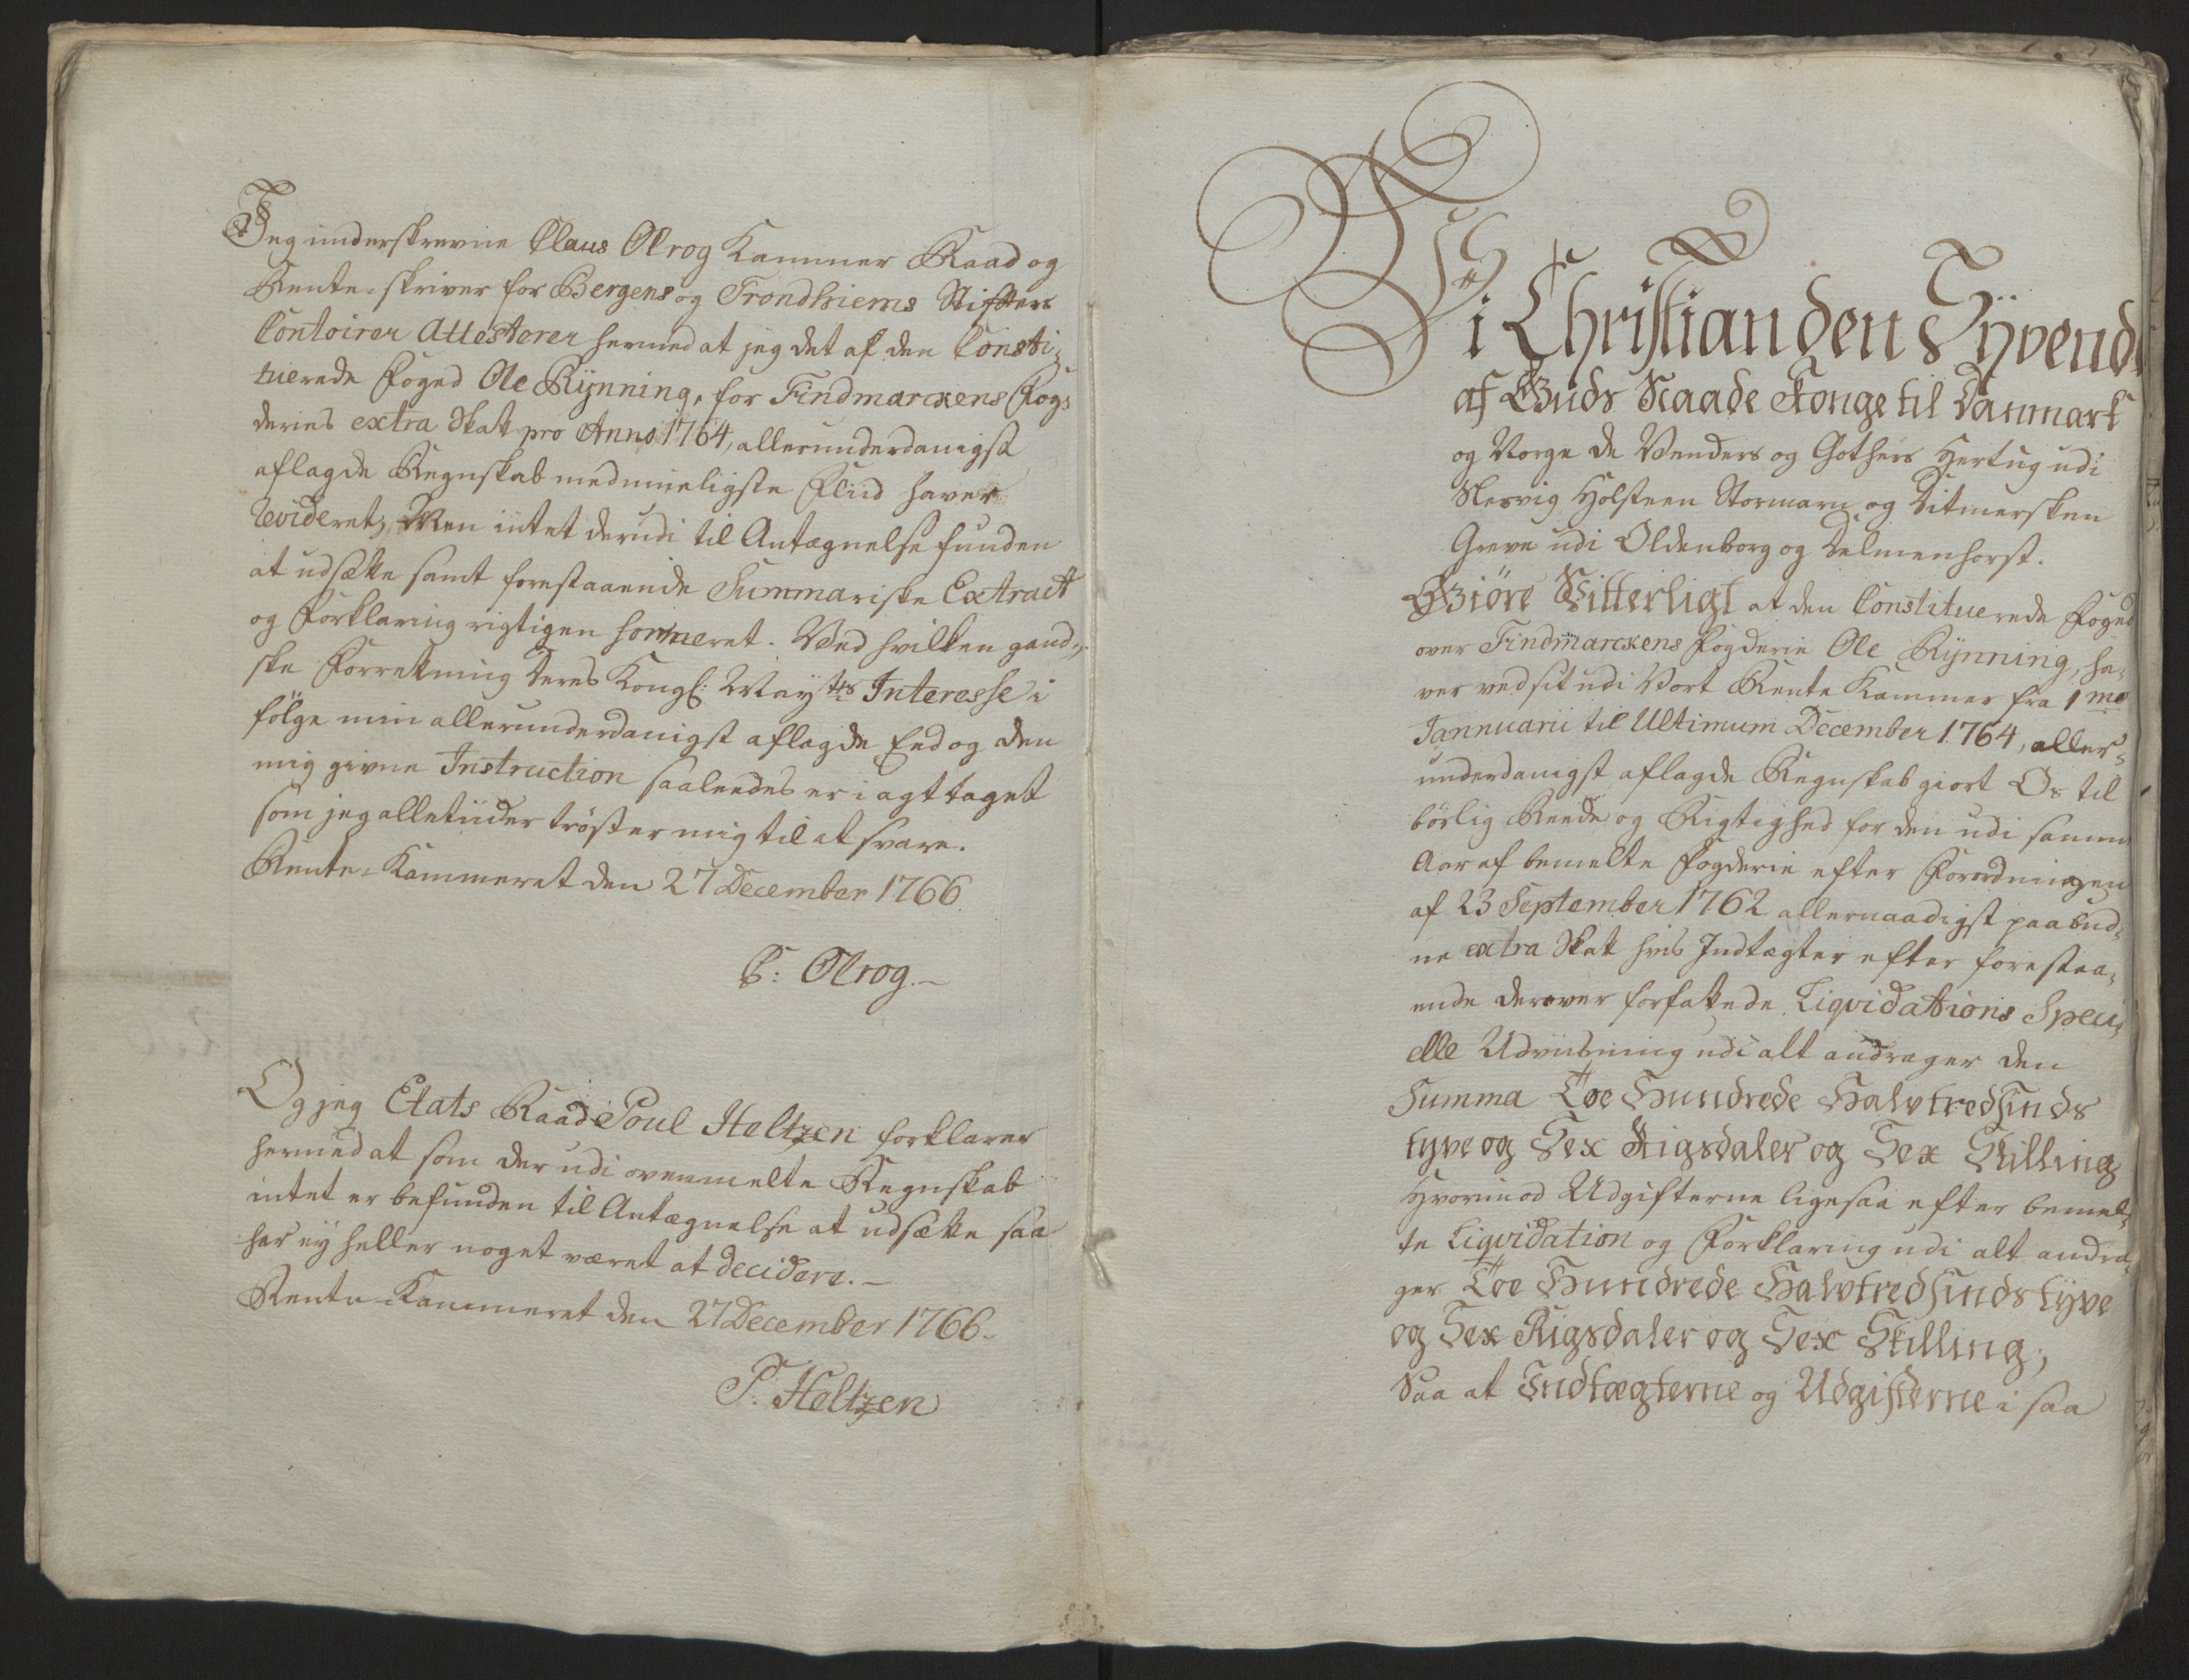 Jeg underskrevne Claus Olrog Kammer Raad og
Rente-skriver for Bergens og Trondhiems Stifters
Contoirer Attesterer hermed at jeg det af den Consti-
tuerede Foged Ole Rÿnning, for Findmarckens Fog-
deries extra Skatt pro Anno 1764, allerunderdanigst
aflagde Regnskab med mueligste Fliid haver
revideret, Men intet derudi til Antægnelse funden
at udsætte samt forestaaende Summariske Extract
og Forklaring rigtigen formeret. Ved hvilken gand-
ske Forretning Deres Kongl: Maÿtts Interesse i
følge min allerunderdanigst aflagde Eed og den
mig givne Instruction saaledes er i agt taget
som jeg alletiider trøster mig til at svare.
Rente-Kammeret den 27 December 1766.
C: Olrog.-
Og jeg Etats Raad Poul Heltzen forklarer
hermed at som der udi ovenmelte Regnskab
intet er befunden til Antægnelse at udsætte saa
har ey heller noget været at decidere.-
Rente-Kammeret den 27 December 1766.
P: Heltzen
Vi Christian den Syvende
af Guds Naade Konge til Danmark
og Norge de Venders og Gothers Hertug udi
Slesvig Holsteen Stormarn og Ditmersken
Greve udi Oldenborg og Delmenhorst.
Giøre Vitterligt at den Constituerede Foged
over Findmarckens Fogderie Ole Rÿnning, ha-
ver ved sit udi Vort Rente Kammer fra 1mo
Jannuarii til Ultimum December 1764, aller-
underdanigst aflagde Regnskab giort Os til
børlig Reede og Rigtighed for den udi samme
Aar af bemelte Fogderie efter Forordningen
af 23 September 1762 allernaadigst paabud-
ne extra Skatt hvis Indtægter efter forestaa-
ende derover forfattede Liqvidations Speci-
elle Udviisning udi alt andrager den
Summa Toe Hundrede Halvtredsinds
tyve og Sex Rigsdaler og Sex Skilling
Hvorimod Udgifterne ligesaa efter bemel-
te Liqvidation og Forklaring udi alt andra-
ger Toe Hundrede Halvtredsinds tyve
og Sex Rigsdaler og Sex Skilling;
Saa at Indtægterne og Udgifterne i saa